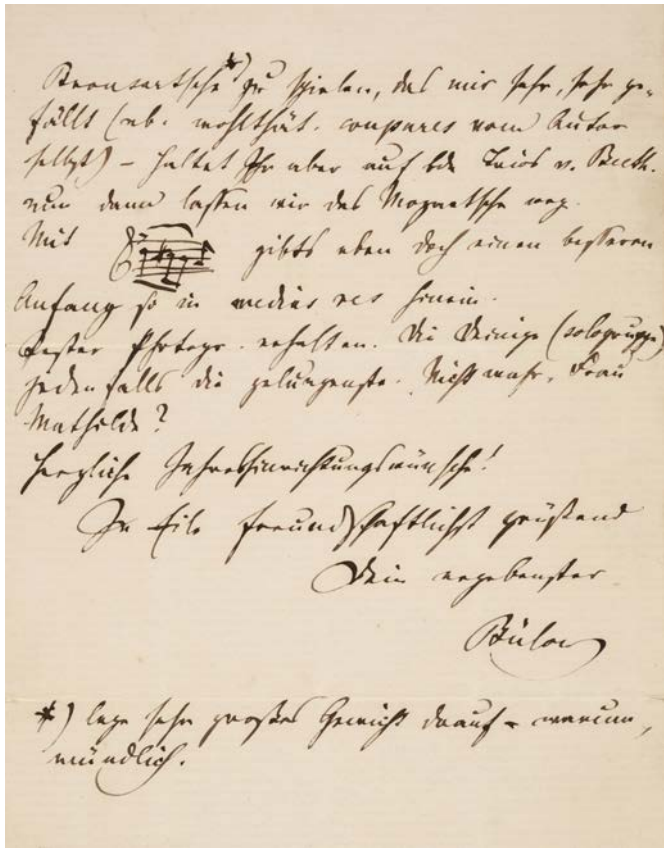 Bronsartsche *) zu spielen, das mir sehr, sehr ge-
fällt (nb. wohlthät. coupures vom Autor
selbst) – haltet Ihr aber auf bde Trios v. Beeth.
nun dann lassen wir das weg.
Mit gibts eben doch einen besseren
Anfang so in medias res hinein.
Pester Photogr. erhalten. Die Deinige (sologruppe)
jedenfalls die gelungenste. Nicht wahr, Frau
Mathilde?
Herzliche Jahreshinrichtungswünsche!
In Eile freundschaftlichst grüßend
Dein ergebenster
Bülow
*) lege sehr großes Gewicht drauf – warum,
mündlich.